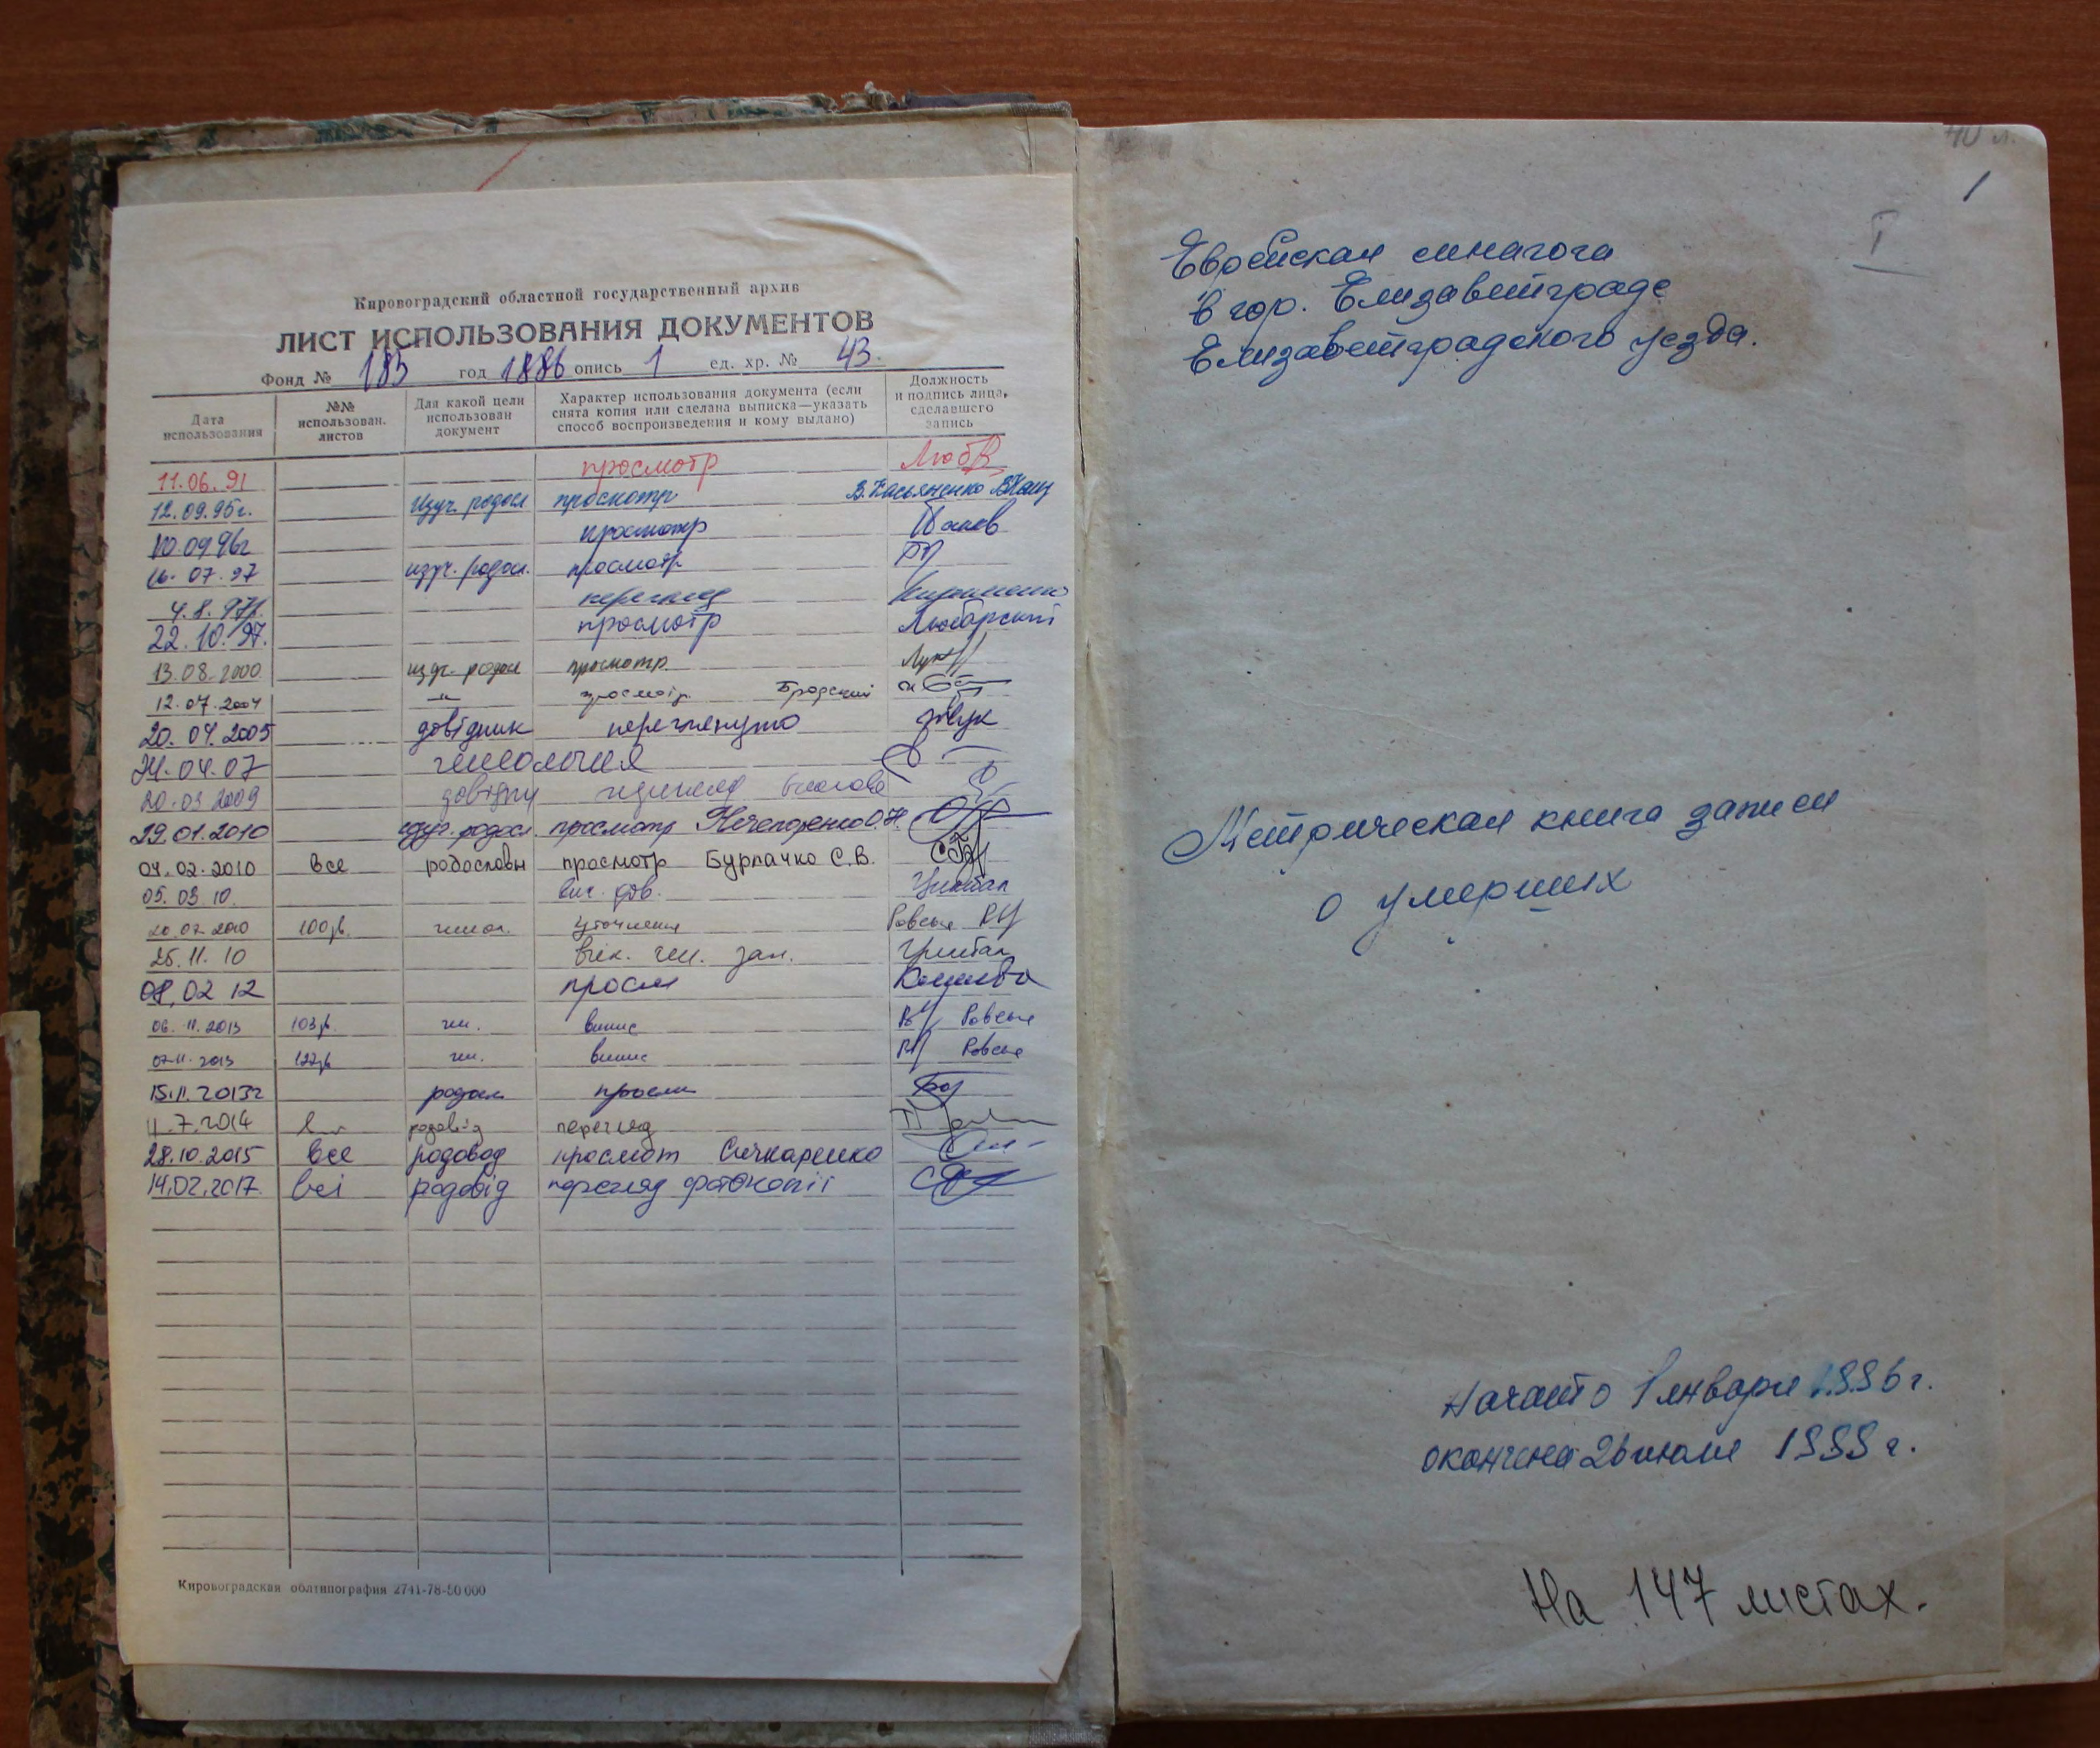 Кировоградский областной государственный архив
ЛИСТ ИСПОЛЬЗОВАНИЯ ДОКУМЕНТОВ
Фонд № 185 год 1886 опись 1 ед. хр. № 43.
Дата использования
№№ использован. листов
Для какой цели использован документ
Характер использования документа (если снята копия или сделана выписка—указать способ воспроизведения и кому выдано)
Должность и подпись лица, сделавшего запись
11.06.91 просмотр
12.09.95г. изуч. родосл просмотр В.Касьяненко
10.09 96г просмотр
16.07.97 изуч. родосл. просмотр
4.8.97г. перегляд
22.10.97. просмотр Любарский
13.08.2000 изуч. родосл просмотр
12.07.2004 —"— просмотр Бродский
20.04.2005 довідник переглянуто
24.04.07 генеология
20.03 2009
29.01.2010 изуч. родосл. просмотр Нечепоренко О.Н.
04.02.2010 все родословн просмотр Бурлачко С.В.
05.03 10.
20.07.2010 100зв. уточнення
25.11.10
08,02 12 просм
06.11.2013 103зв. ген. випис
07.11.2013 122зв ген. випис
15.11.2013г родосл просм
11.7.2014 родовід перегляд
28.10.2015 все родовод просмот Сичкаренко
14.02.2017. всі родовід перегляд фотокопії
Кировоградская облтипография 2741-78-50 000
40 л.
1
I
Еврейская синагога
в гор. Елизаветграде
Елизаветградского уезда.
Метрическая книга записи
о умерших
Начато 1 января 1886 г.
окончена 26 июля 1888 г.
На 147 листах.